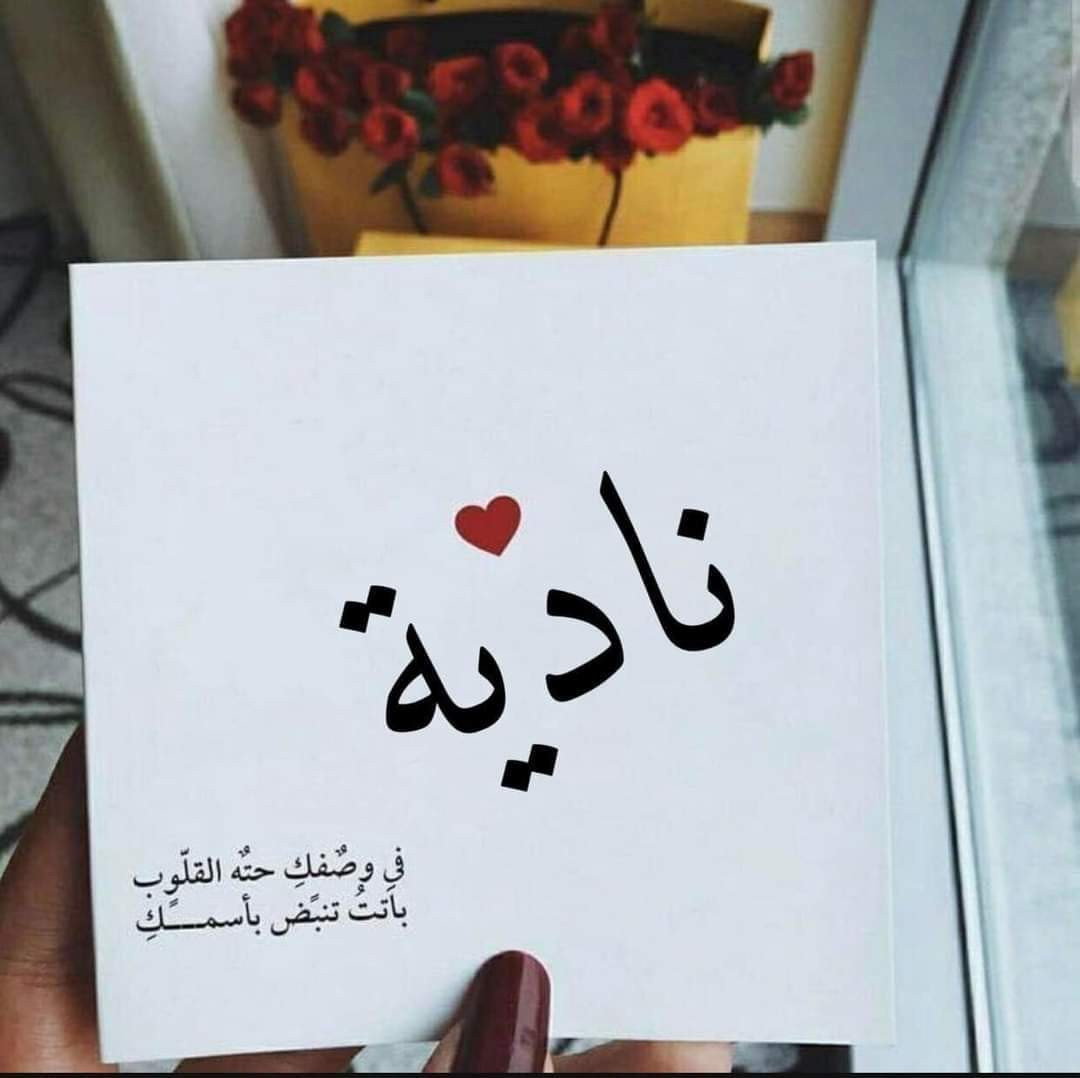 نادية
في وصٌفكِ حتٌه القلّوب
باتتُ تنبًض بأسمـــكِ